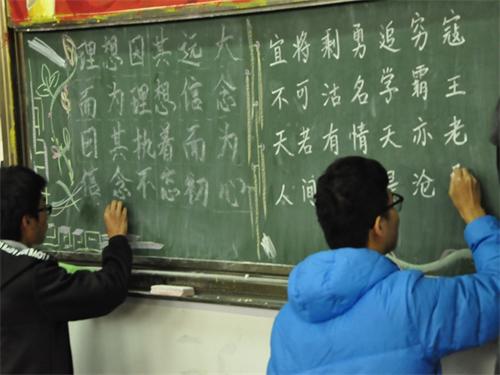 理想因其远大
而为理想信念
因其执着而为
信念不忘初心
宜将剩勇追穷寇
不可沽名学霸王
天若有情天亦老
人间 沧